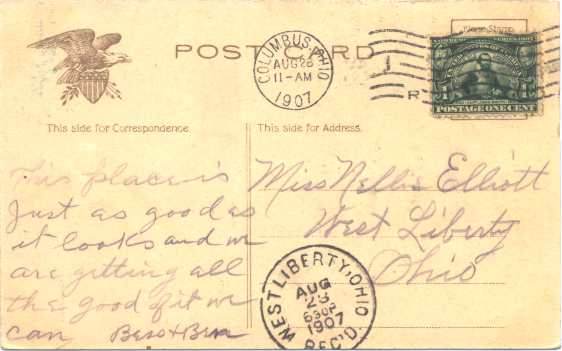 POST CARD
COLUMBUS, OHIO
AUG 28
11-AM
1907
Place Stamp
SERIES 1907
1
POSTAGE ONE CENT
This side for Correspondence.
This side for Address.
This place is
Just as good as
it looks and we
are getting all
the good of it we
can
Miss Nellie Elliott
West Liberty
Ohio
WEST LIBERTY, OHIO
AUG
28
1907
REC'D.